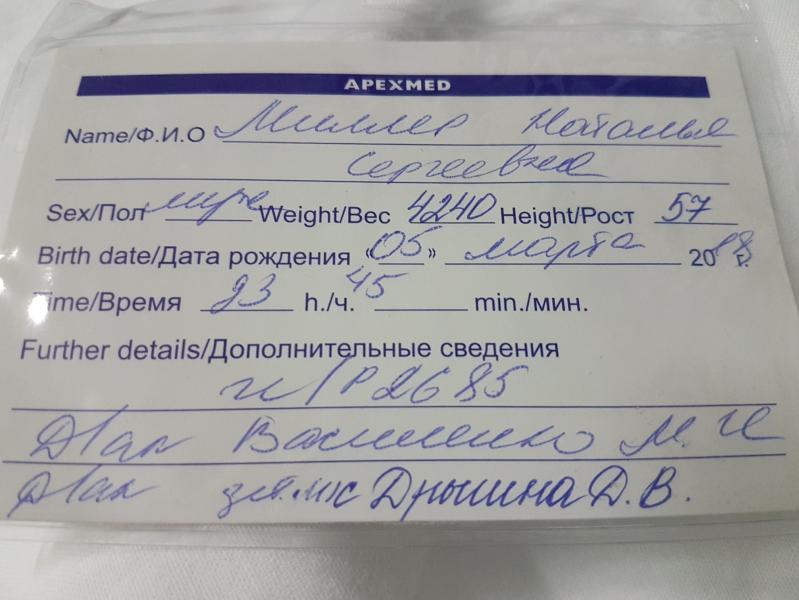 APEXMED
Name/Ф.И.О Миллер Наталья
Сергеевна
Sex/Пол муж Weight/Вес 4240 Height/Рост 57
Birth date/Дата рождения «05» марта 2018 г.
Time/Время 23 h./ч. 45 min./мин.
Further details/Дополнительные сведения
и/р 2685
Василенко М. И
Дрышина Д. В.